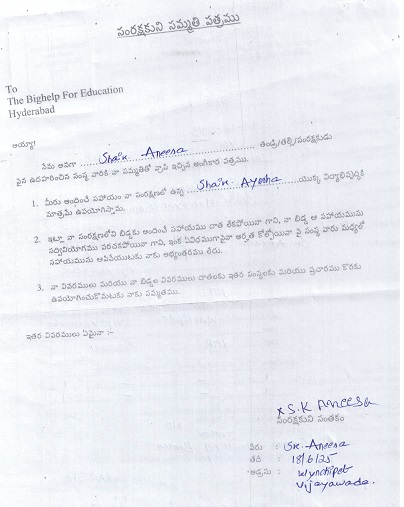 సంరక్షకుని సమ్మతి పత్రము
To
The Bighelp For Education
Hyderabad
అయ్యా!
నేను అనగా Shaik Aneesa తండ్రి/తల్లి/సంరక్షకుడు
పైన ఉదహరించిన సంస్థ వారికి నా సమ్మతితో వ్రాసి ఇచ్చిన అంగీకార పత్రము.
1. మీరు అందించే సహాయం నా సంరక్షణలో ఉన్న Shaik Ayesha యొక్క విద్యాభివృద్ధికి
మాత్రమే ఉపయోగిస్తాను.
2. ఇట్లా నా సంరక్షణలోని బిడ్డకు అందించే సహాయము దాత లేకపోయినా గాని, నా బిడ్డ ఆ సహాయమును
సద్వినియోగము పరచకపోయినా గాని, ఇంక ఏవిధముగానైనా అర్హత కోల్పోయినా పై సంస్థ వారు మధ్యలో
సహాయమును ఆపివేయుటకు నాకు అభ్యంతరము లేదు.
3. నా వివరములు మరియు నా బిడ్డల వివరములు దాతలకు ఇతర సంస్థలకు మరియు ప్రచారము కొరకు
ఉపయోగించుకొనుటకు నాకు సమ్మతము.
ఇతర వివరములు ఏమైనా :-
x S.K Aneesa
సంరక్షకుని సంతకం
పేరు : SK. Aneesa
తేది : 18/6/25
అడ్రసు : Wynchipet
Vijayawada.